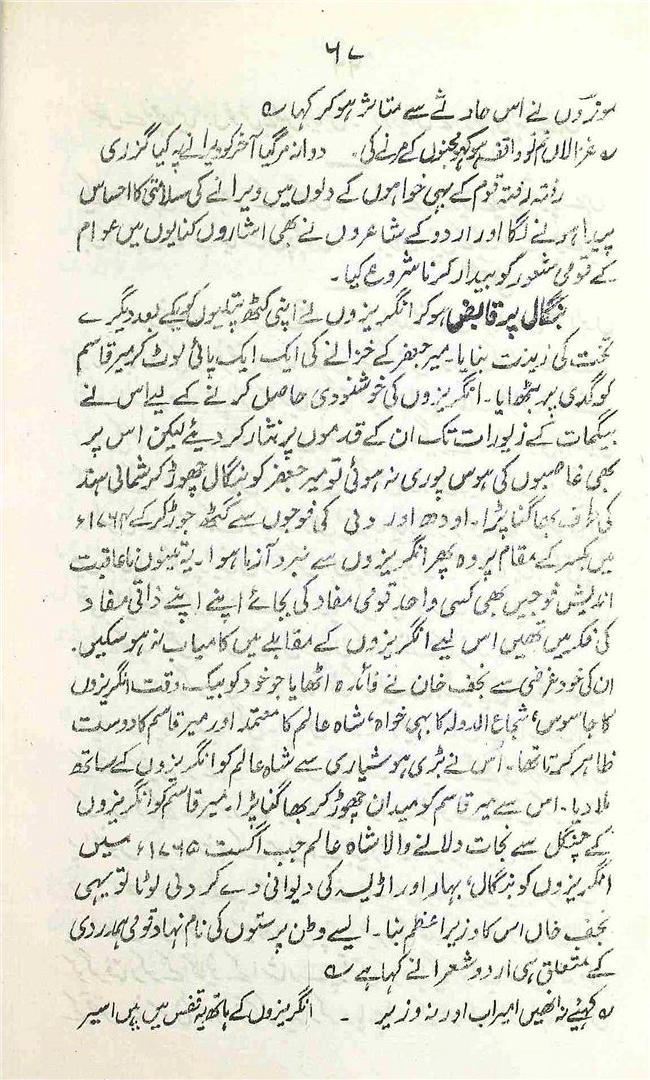 ۶۷
موزوں نے اس حادثے سے متاثر ہو کر کہا ؎
؎ غزالاں تم تو واقف ہو کہو مجنوں کے مرنے کی۔ دوانہ مر گیا آخر کو ویرانے پہ کیا گزری
رفتہ رفتہ قوم کے بہی خواہوں کے دلوں میں ویرانے کی سلامتی کا احساس
پیدا ہونے لگا اور اردو کے شاعروں نے بھی اشاروں کنایوں میں عوام
کے قومی شعور کو بیدار کرنا شروع کیا۔
بنگال پر قابض ہو کر انگریزوں نے اپنی کٹھ پتلیوں کو یکے بعد دیگرے
تخت کی زینت بنایا۔ میر جعفر کے خزانے کی ایک ایک پائی لوٹ کر میر قاسم
کو گدی پر بٹھایا۔ انگریزوں کی خوشنودی حاصل کرنے کے لیے اس نے
بیگمات کے زیورات تک ان کے قدموں پر نثار کر دیئے لیکن اس پر
بھی غاصبوں کی ہوس پوری نہ ہوئی تو میر جعفر کو بنگال چھوڑ کر شمالی ہند
کی طرف بھاگنا پڑا۔ اودھ اور دلی کی فوجوں سے گٹھ جوڑ کر کے ۱۷۶۴ء
میں بکسر کے مقام پر وہ پھر انگریزوں سے نبرد آزما ہوا۔ یہ تینوں ناعاقبت
اندیش فوجیں بھی کسی واحد قومی مفاد کی بجائے اپنے اپنے ذاتی مفاد
کی فکر میں تھیں اس لیے انگریزوں کے مقابلے میں کامیاب نہ ہو سکیں۔
ان کی خود غرضی سے نجف خان نے فائدہ اٹھایا جو خود کو بیک وقت انگریزوں
کا جاسوس، شجاع الدولہ کا بہی خواہ، شاہ عالم کا معتمد اور میر قاسم کا دوست
ظاہر کرتا تھا۔ اُس نے بڑی ہوشیاری سے شاہ عالم کو انگریزوں کے ساتھ
ملا دیا۔ اس سے میر قاسم کو میدان چھوڑ کر بھاگنا پڑا۔ میر قاسم کو انگریزوں
کے چنگل سے نجات دلانے والا شاہ عالم جب اگست ۱۷۶۵ء میں
انگریزوں کو بنگال، بہار اور اڑیسہ کی دیوانی دے کر دلی لوٹا تو یہی
نجف خاں اس کا وزیر اعظم بنا۔ ایسے وطن پرستوں کی نام نہاد قومی ہمدردی
کے متعلق ہی اردو شعرا نے کہا ہے ؎
؎ کہیئے نہ انھیں امیر اب اور نہ وزیر ۔ انگریزوں کے ہاتھ یہ قفس میں ہیں اسیر